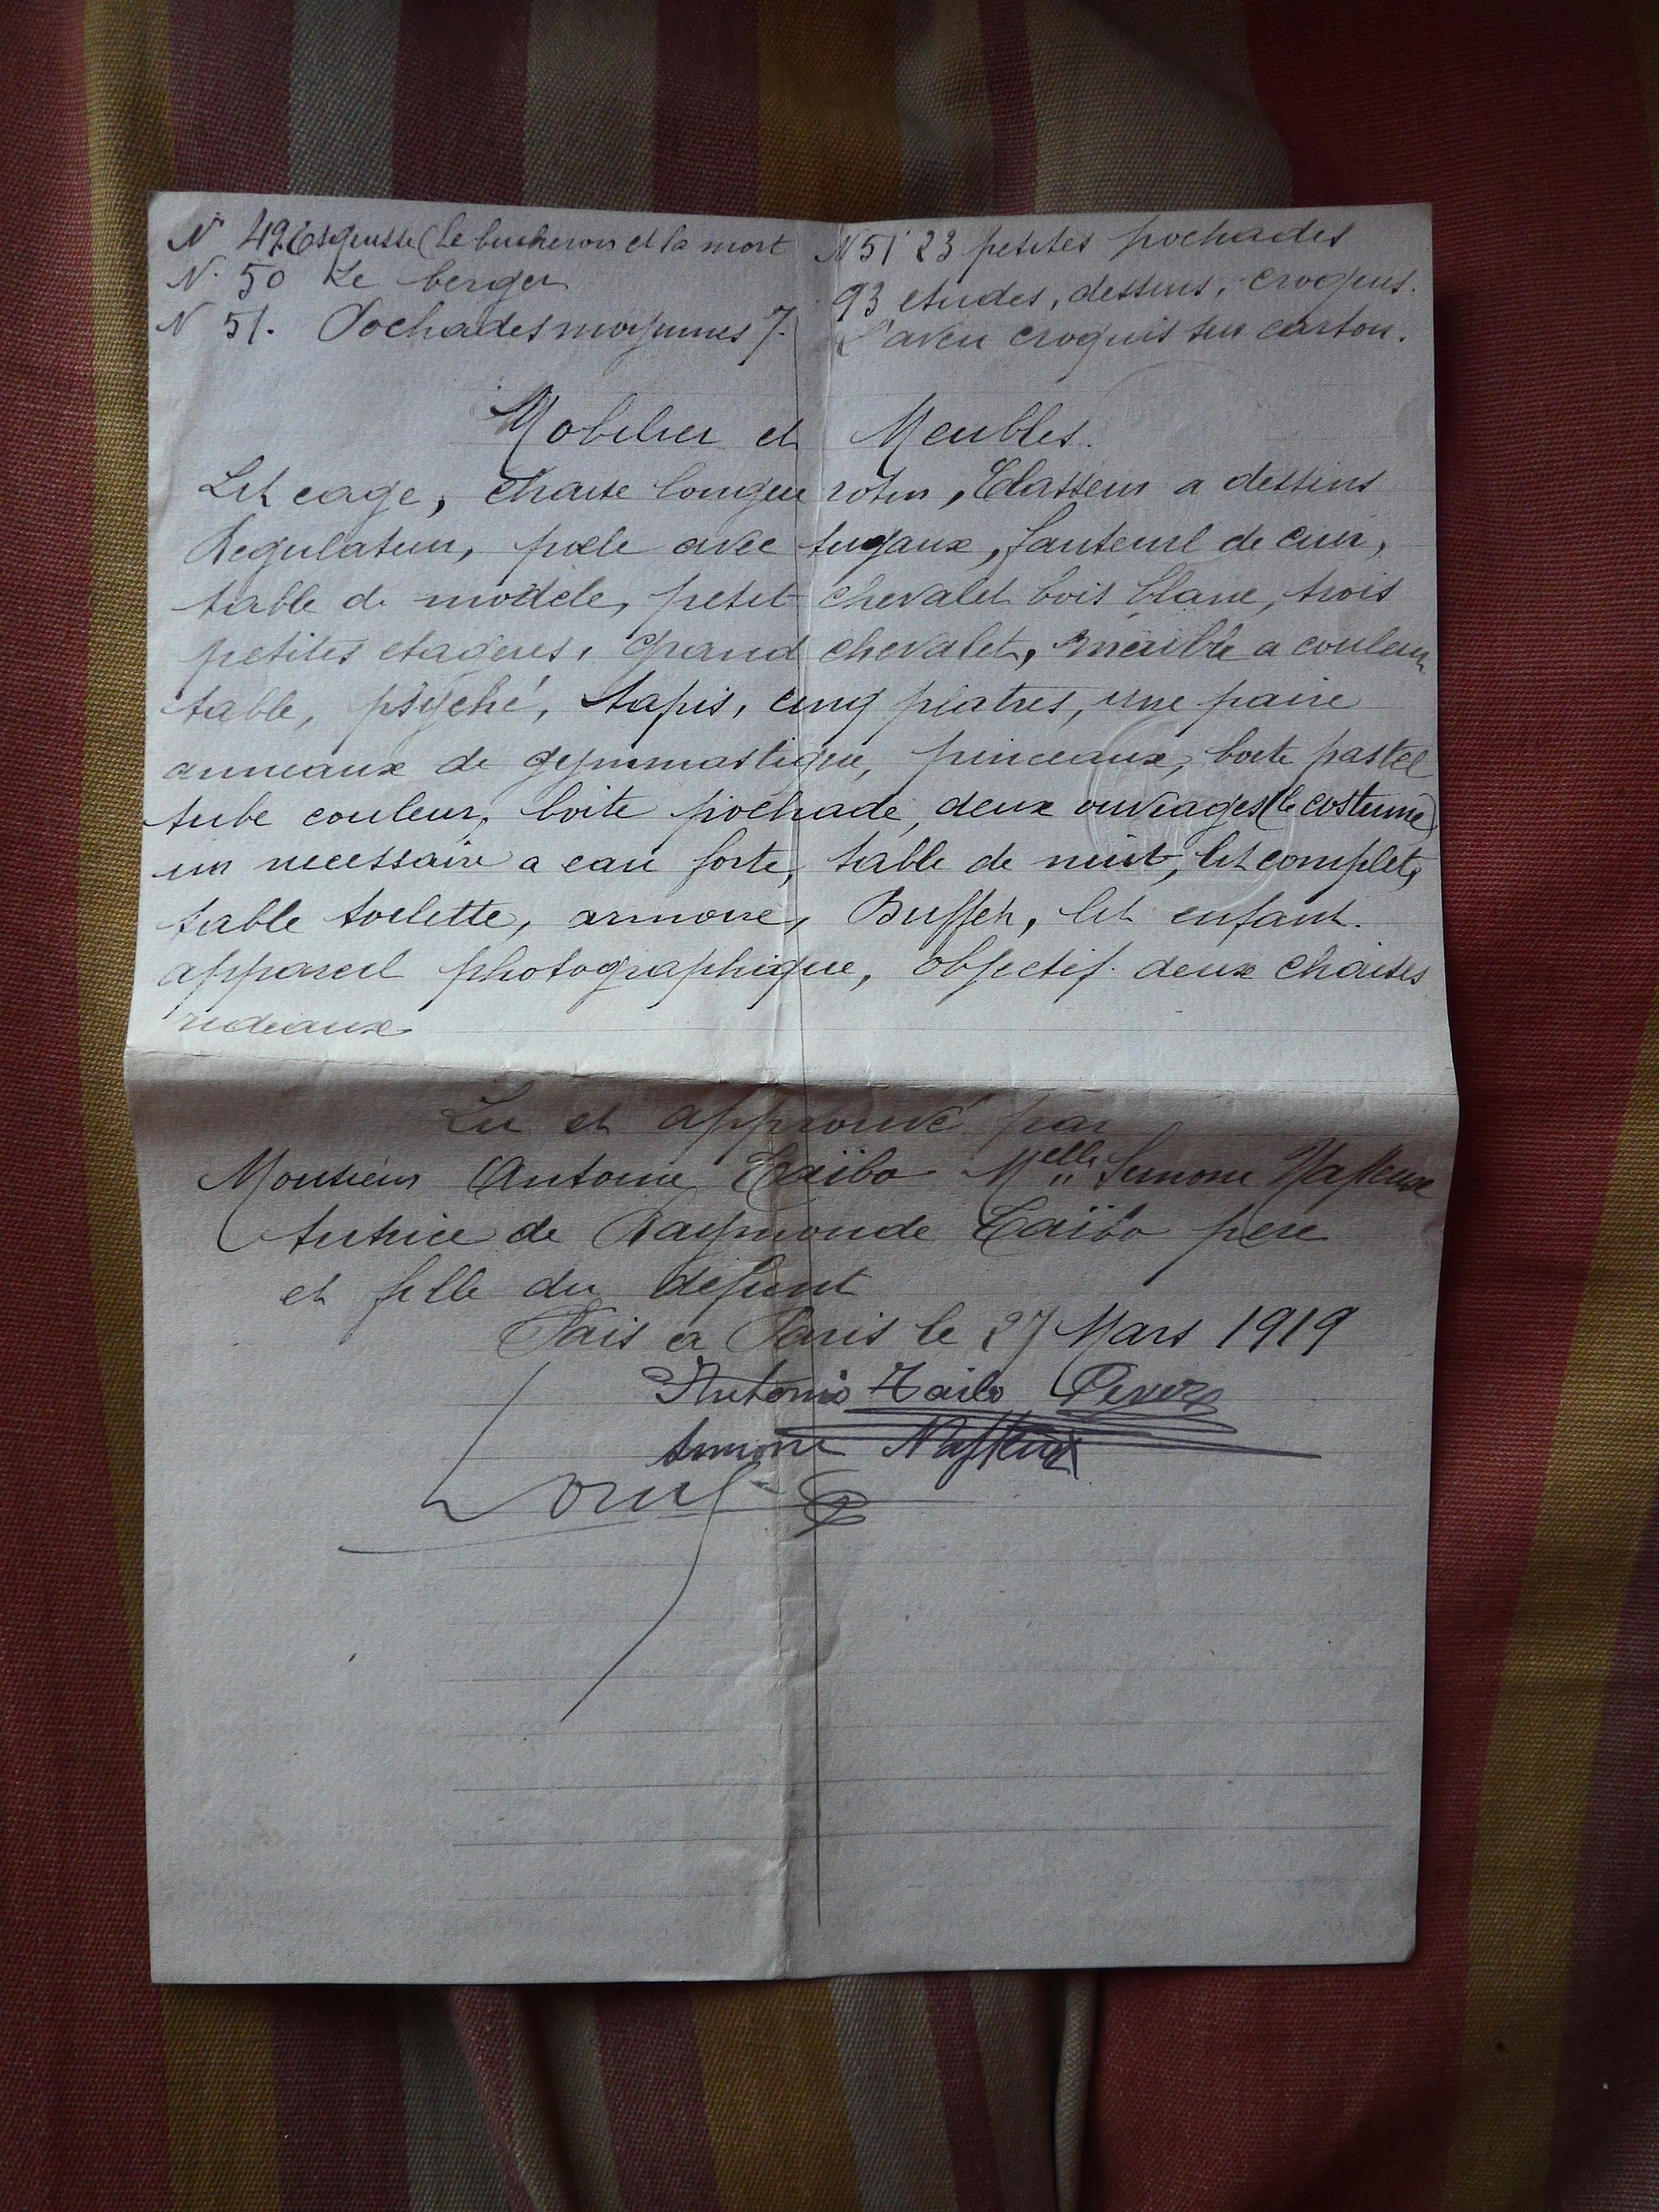 N° 49. Esquisse (le bucheron et la mort
N. 50 Le berger
N 51. Pochades moyennes 7.
N 51 23 petites pochades
93 etudes, dessins, croquis.
L'aveu croquis sur carton.
Mobilier et Meubles.
Lit cage, chaise longue rotin, Classeur a dessins
Regulateur, poele avec tuyaux, fauteuil de cuir,
table de modèle, petit chevalet bois blanc, trois
petites etageres, grand chevalet, meuble a couleur
table, psyché, tapis, cinq platres, une paire
anneaux de gymnastique, pinceaux, boite pastel
tube couleur, boite pochade, deux ouvrages (le costume)
un necessaire a eau forte, table de nuit, lit complet,
table toilette, armoire, Buffet, lit enfant.
appareil photographique, objectif. deux chaises
rideaux
Lu et approuvé par
Monsieur Antoine Taïbo Melle Simone
tutrice de Raymonde Taïbo pere
et fille du defunt
Fais a Paris le 27 Mars 1919
Antonio Taibo Perez
Simone